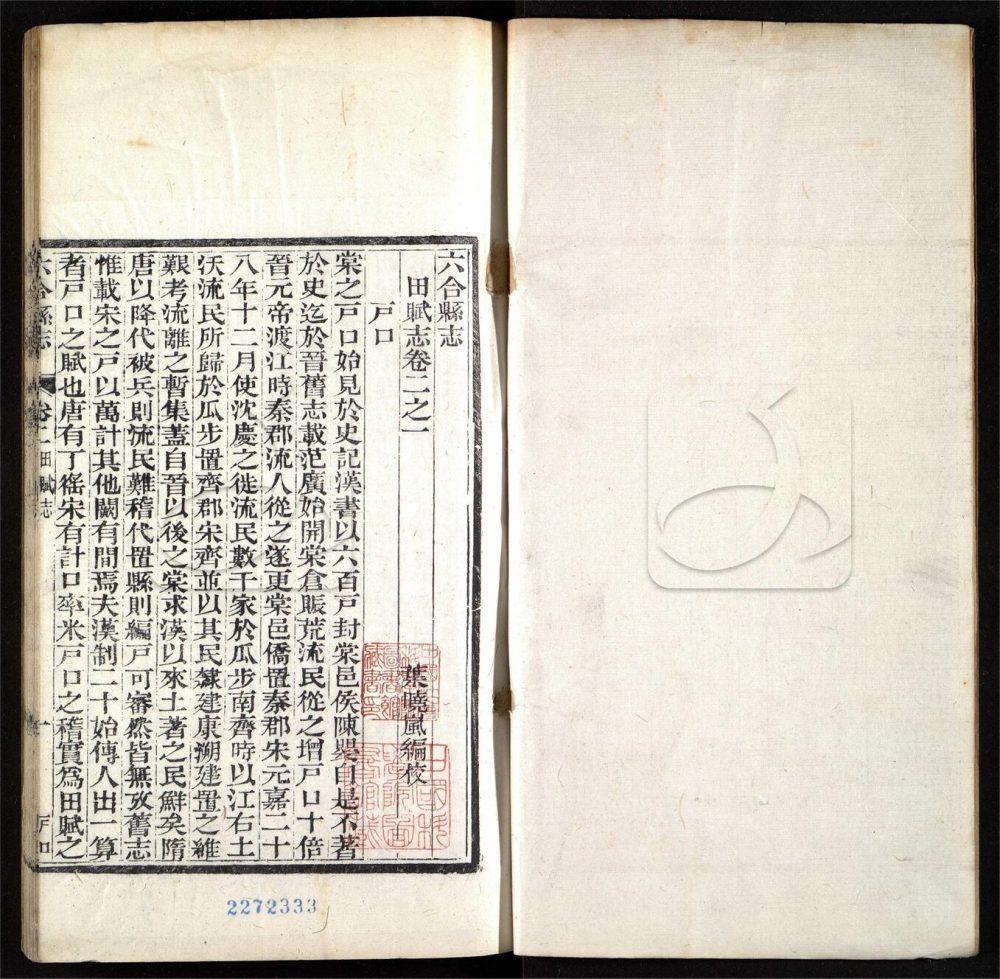 六合縣志
田賦志卷二之一
葉曉嵐編校
戶口
棠之戶口始見於史記漢書以六百戶封棠邑侯陳嬰自是不著
於史迄於晉舊志載范廣始開棠倉賑荒流民從之增戶口十倍
晉元帝渡江時秦郡流人從之遂更棠邑僑置秦郡宋元嘉二十
八年十二月使沈慶之徙流民數千家於瓜步南齊時以江右土
沃流民所歸於瓜步置齊郡宋齊並以其民隸建康溯建置之維
艱考流離之暫集蓋自晉以後之棠求漢以來土著之民鮮矣隋
唐以降代被兵則流民難稽代置縣則編戶可審然皆無攷舊志
惟載宋之戶以萬計其他闕有間焉夫漢制二十始傅人出一算
者戶口之賦也唐有丁徭宋有計口率米戶口之稽實為田賦之
六合縣志 卷二 田賦志 一 戶口
2272333